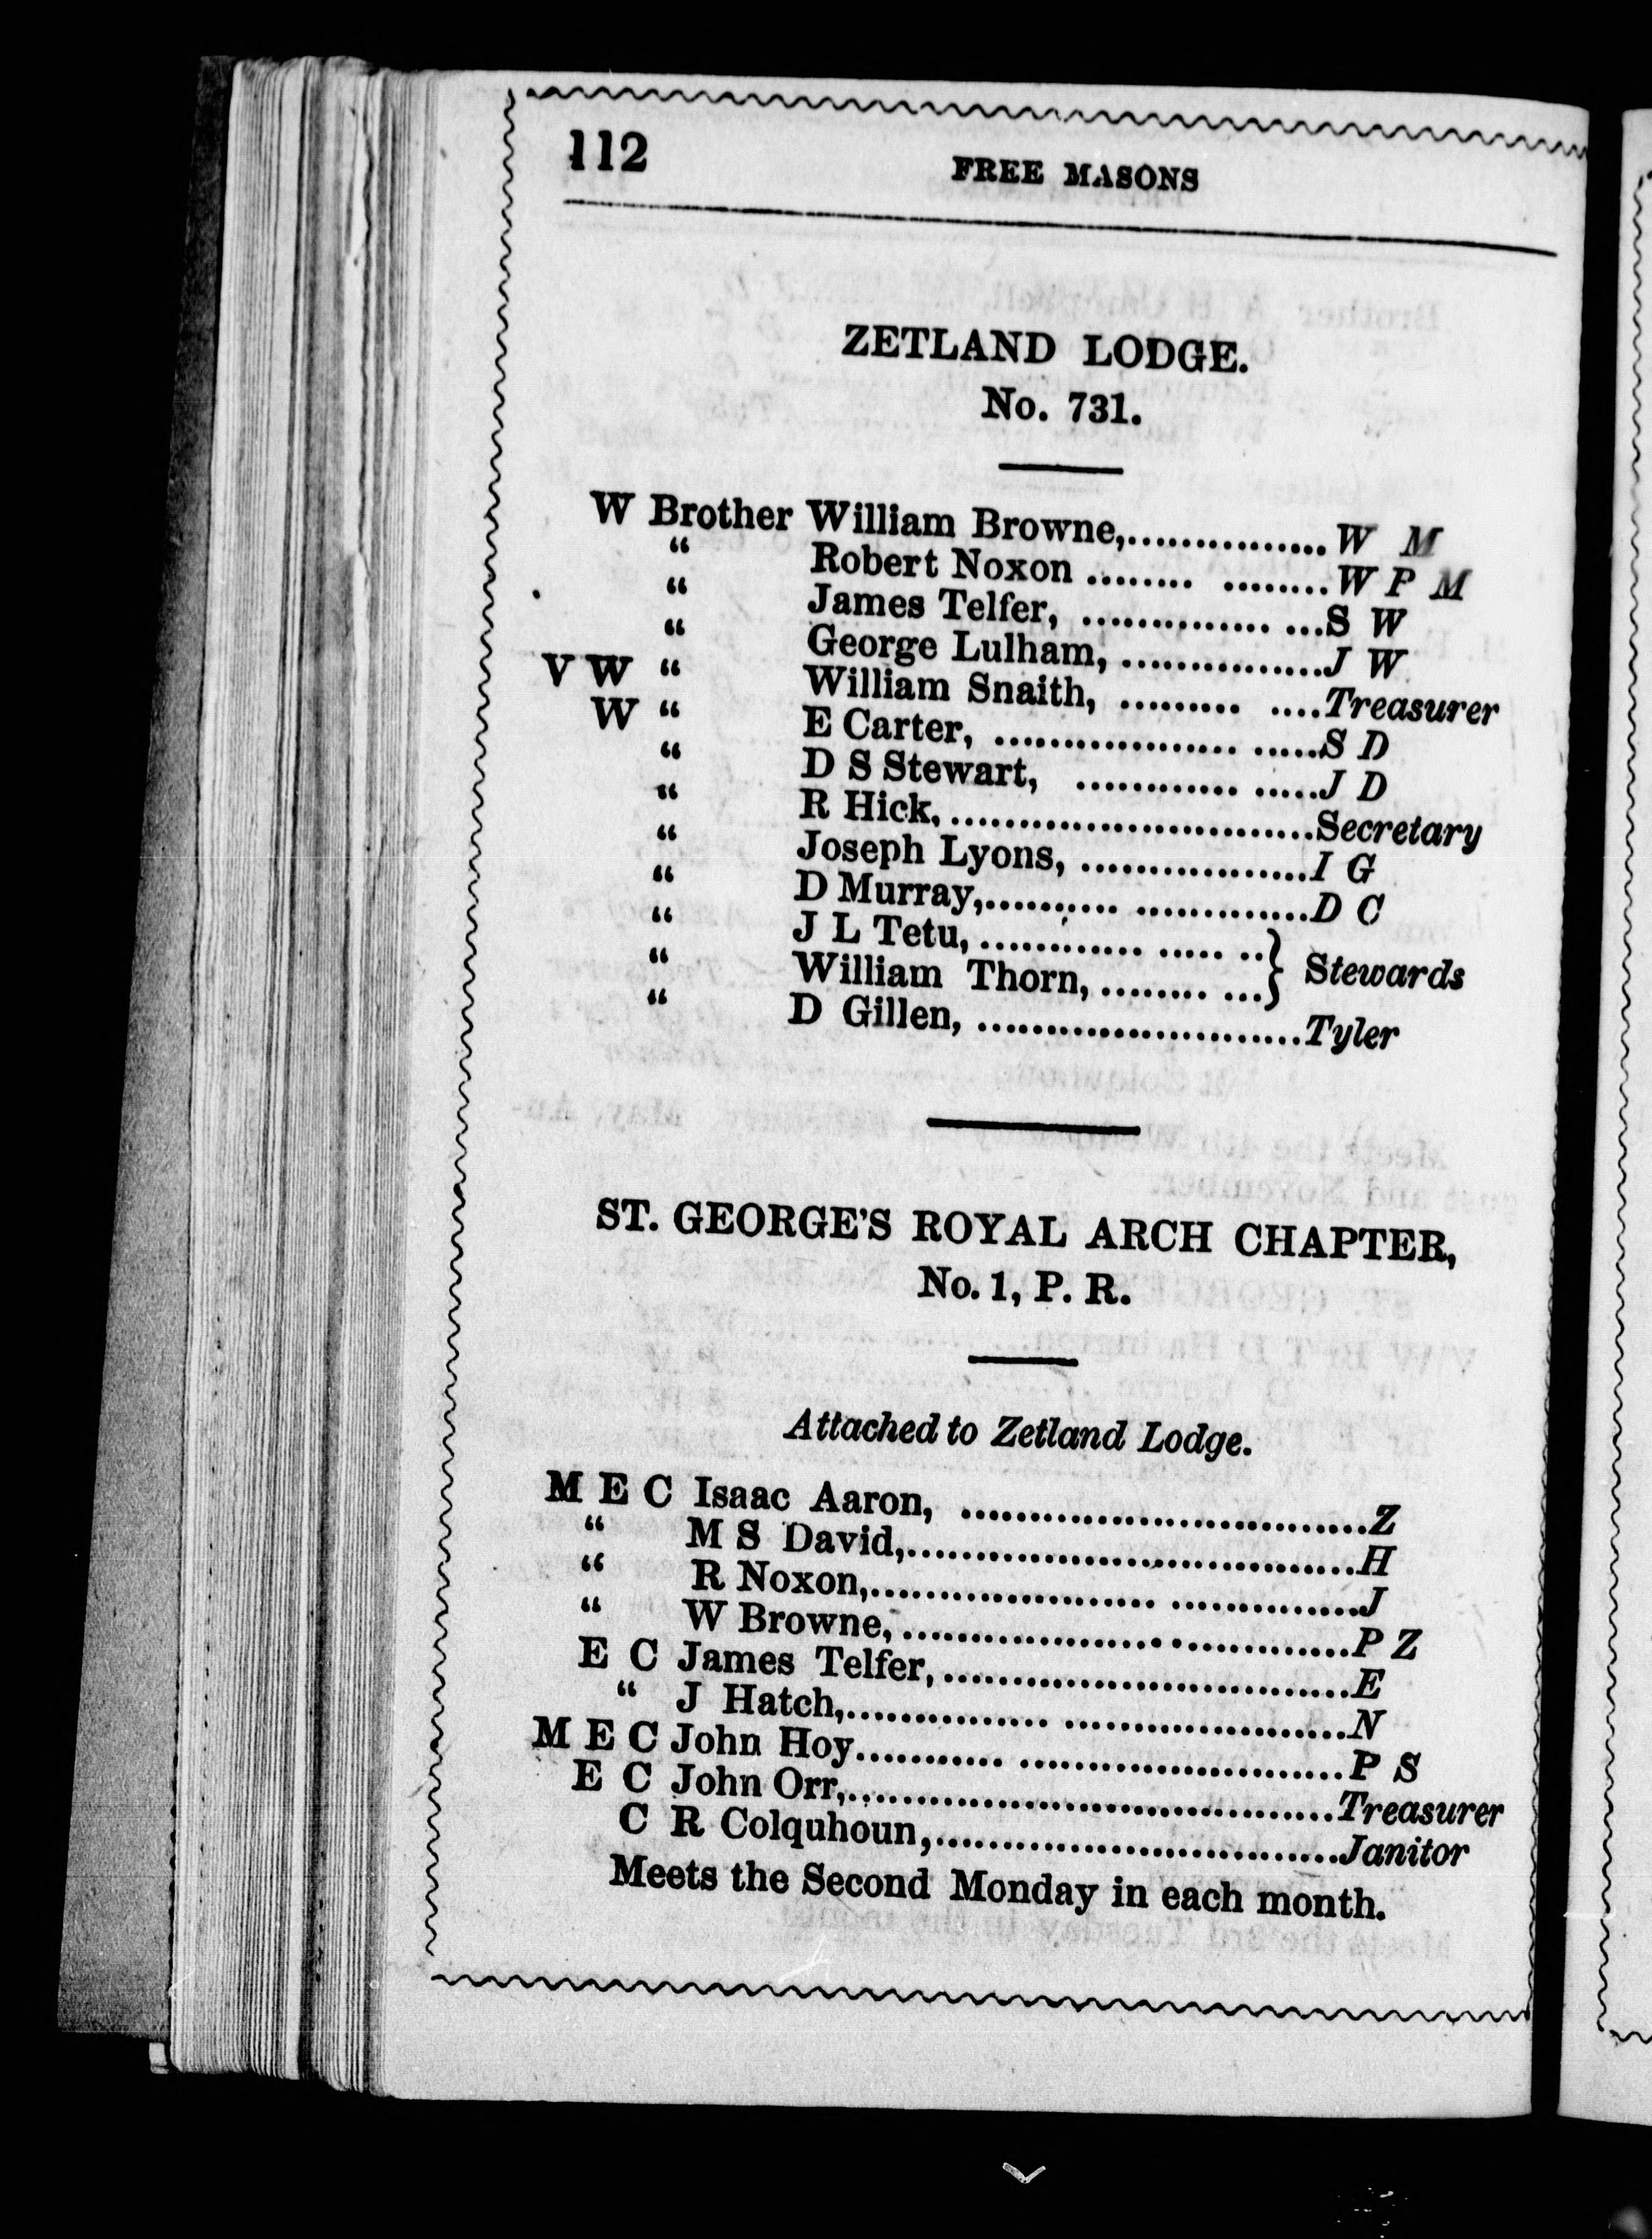 112 FREE MASONS
ZETLAND LODGE.
No. 731.
W Brother William Browne,............... W M
“ Robert Noxon ........ ........W P M
“ James Telfer, .............. ...S W
“ George Lulham, ...............J W
V W “ William Snaith, ......... ....Treasurer
W “ E Carter, .................. ......S D
“ D S Stewart, ............ .....J D
“ R Hick, ...........................Secretary
“ Joseph Lyons, .................I G
“ D Murray,.......... .............D C
“ J L Tetu, ............ ..... ..} Stewards
“ William Thorn, ........ ...}
“ D Gillen, ........................Tyler
ST. GEORGE'S ROYAL ARCH CHAPTER,
No. 1, P. R.
Attached to Zetland Lodge.
M E C Isaac Aaron, ..............................Z
“ M S David,.................................H
“ R Noxon,..................... ..............J
“ W Browne, .................................P Z
E C James Telfer, ..............................E
“ J Hatch,............... .....................N
M E C John Hoy........... ........................P S
E C John Orr,....................................Treasurer
C R Colquhoun,..............................Janitor
Meets the Second Monday in each month.